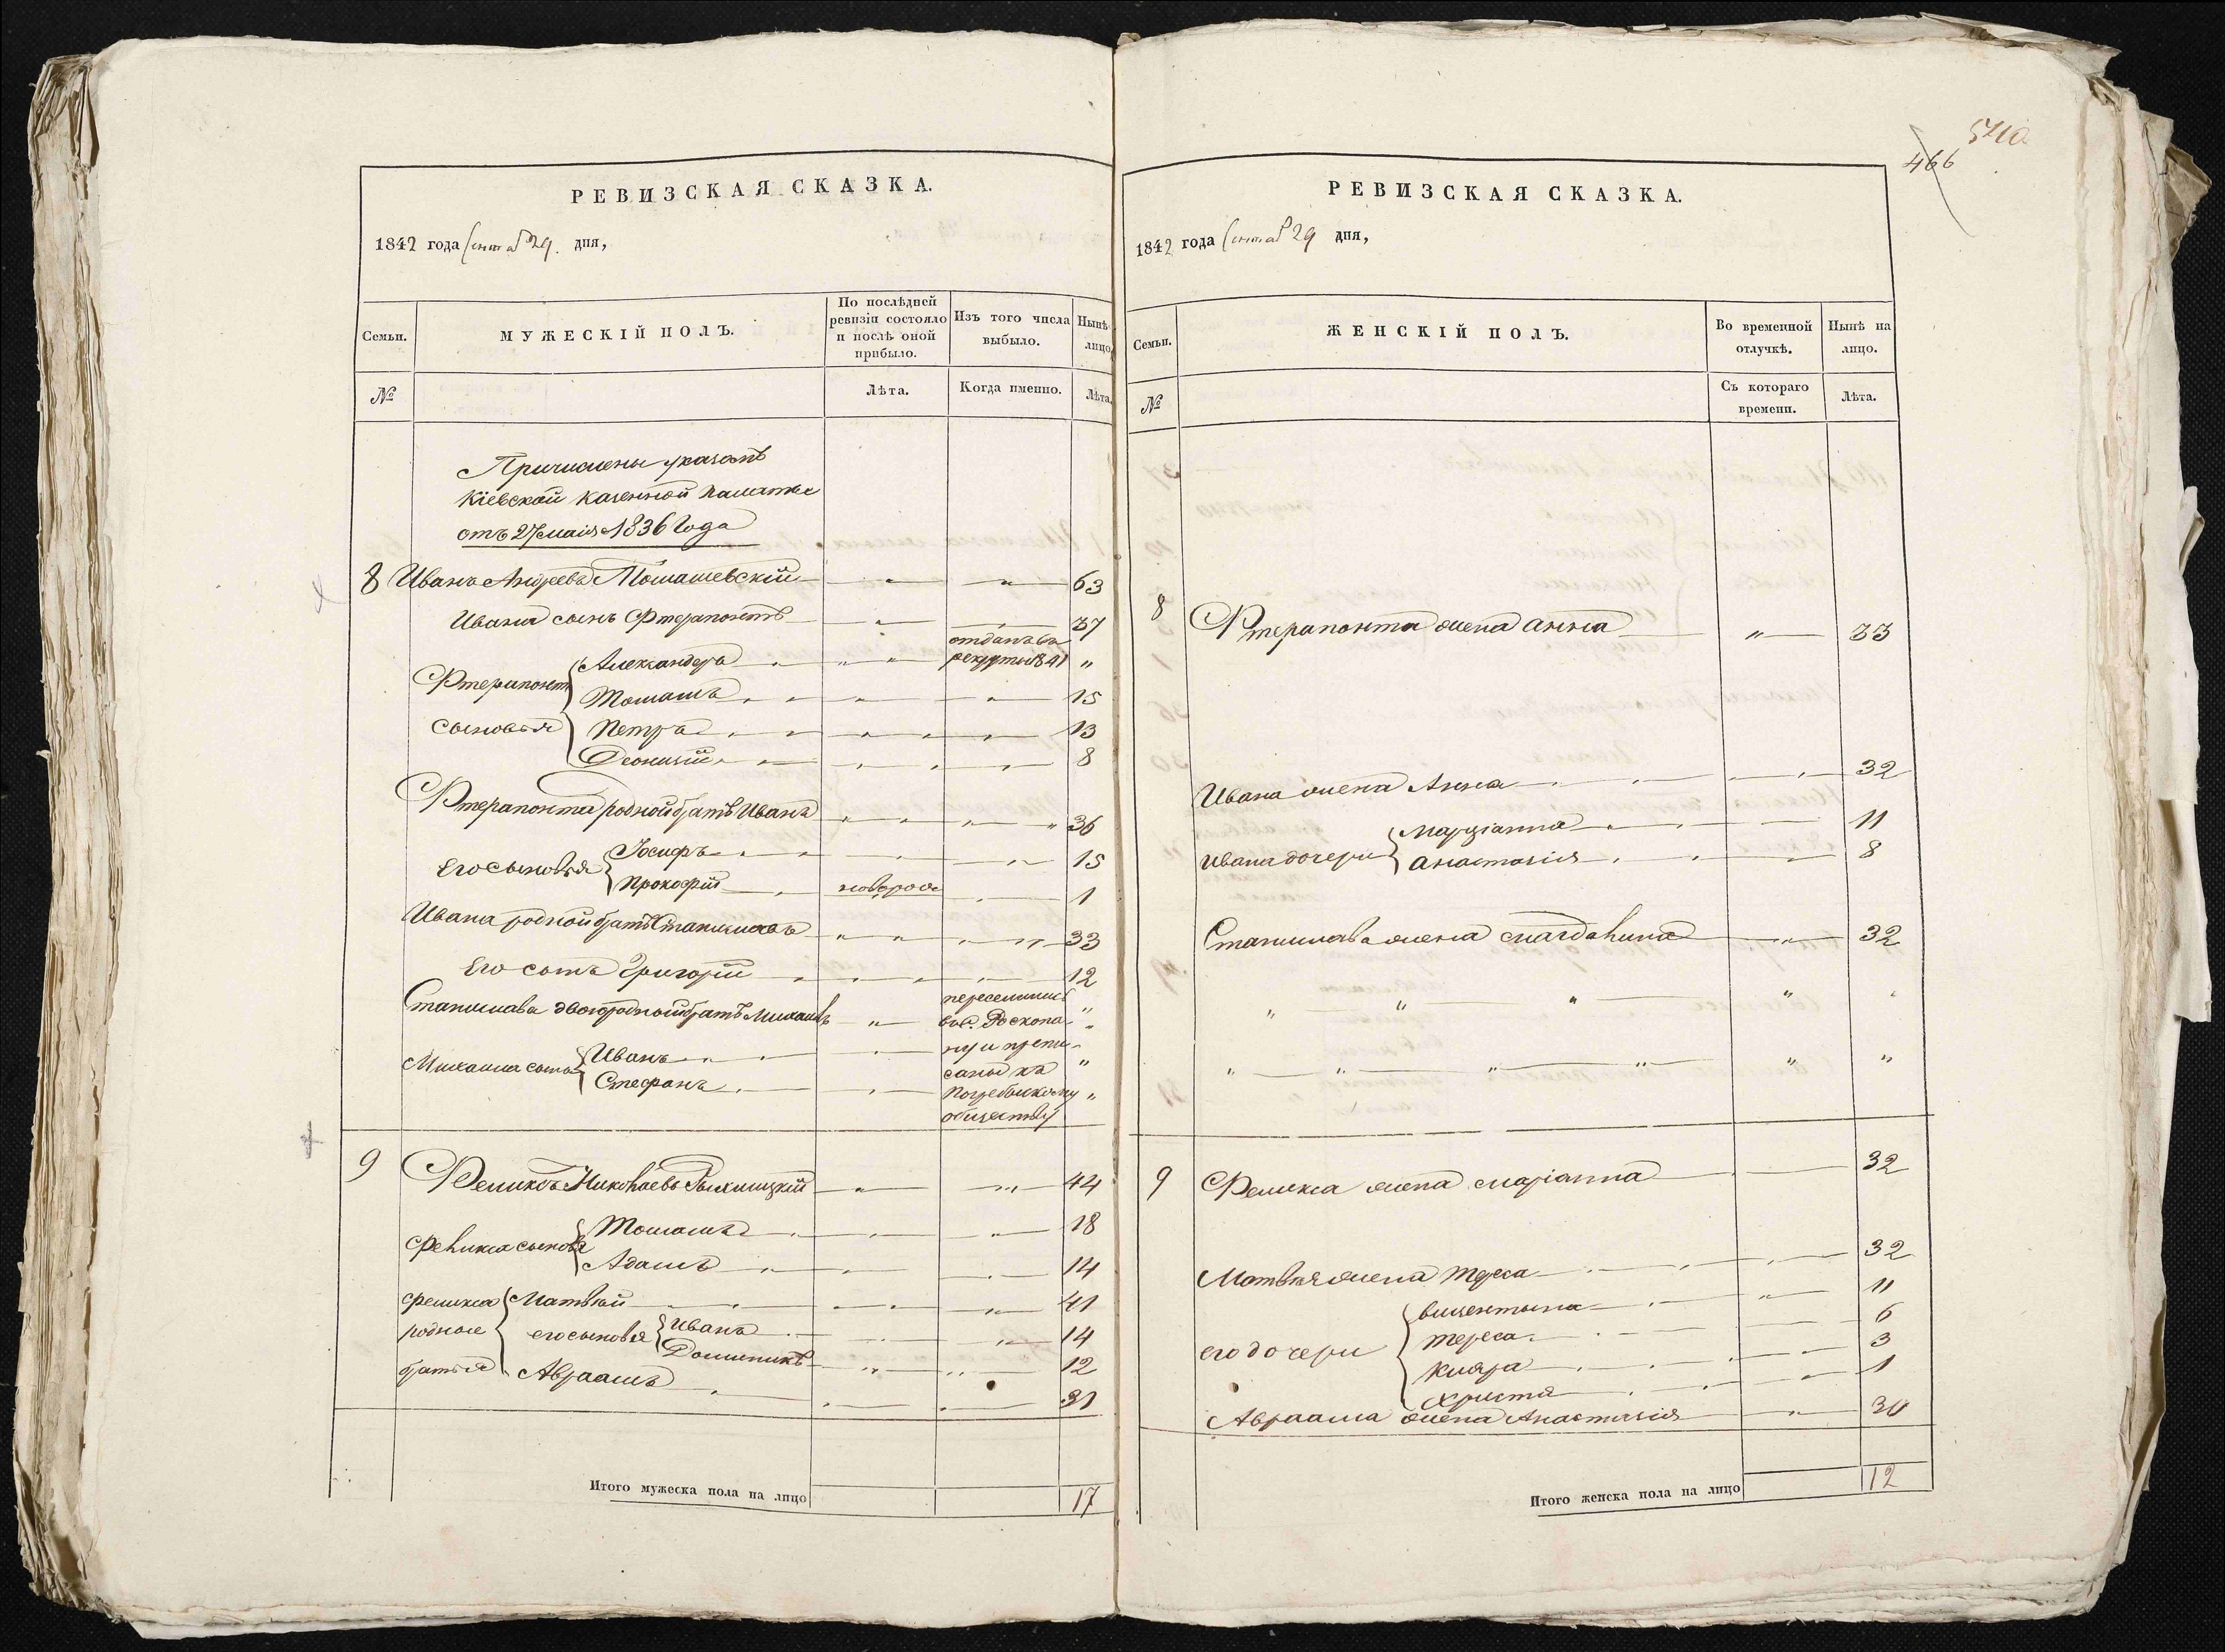 РЕВИЗСКАЯ СКАЗКА.
1842 года Сентяб 29. дня,
Семьи.
МУЖЕСКІЙ ПОЛЪ.
По послѣдней
ревизіи состояло
и послѣ оной
прибыло.
Изъ того числа
выбыло.
Нынѣ
лицо
№
Лѣта.
Когда именно.
Лѣта.
Причислены указомъ
Кіевской казенной палаты
отъ 27 маія 1836 года
8 Иванъ Андреевъ " " 63
Ивана сынъ Фтерапонтъ " 37
Фтерапонта сыновья
Александеръ " " отданъ въ рекруты 1841 "
Томашъ " " 15
Петръ " " 13
Деонизій " " 8
Фтерапонта родной братъ Иванъ " " 36
Его сыновья
Іосифъ " " 15
Прокофій новорож " 1
Ивана родной братъ Станиславъ " " 33
Его сынъ Григорій " " 12
Станислава двоюродной братъ Михаилъ " "
Михаила сыны
Иванъ " "
Стефанъ " "
переселились
въ с. Роскопа-
ну и припи-
саны къ
Погребыскому
обществу
9 Феликсъ Николаевъ " " 44
Феликса сыновья
Томашъ " " 18
Адамъ " " 14
Феликса родные братья
Матвѣй " " 41
его сыновья
Иванъ " " 14
Доминикъ " " 12
Авраамъ " " 31
Итого мужеска пола на лицо 17
466
РЕВИЗСКАЯ СКАЗКА.
1842 года Сентяб 29 дня,
Семьи.
ЖЕНСКІЙ ПОЛЪ.
Во временной
отлучкѣ.
Нынѣ на
лицо.
№
Съ котораго
времени.
Лѣта.
8 Фтерапонта жена Анна " 33
Ивана жена Анна " 32
Ивана дочери
Марціанна " 11
Анастазія " 8
Станислава жена Магдалина " 32
" " " " "
" " " " " "
9 Феликса жена Маріанна 32
Матвѣя жена Тереса " 32
его дочери
Вицентына " 11
Тереса 6
Кляра " 3
Христя " 1
Авраама жена Анастазія " 30
Итого женска пола на лицо 12